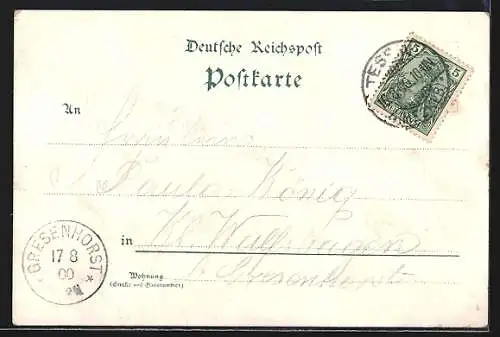 Deutsche Reichspost
Postkarte
5 5
TESS
An
Fräulein
Paula König
in Kl. Wulfshagen
b. Gresenhorst
Wohnung
(Straße und Hausnummer)
GRESENHORST
17 8
00